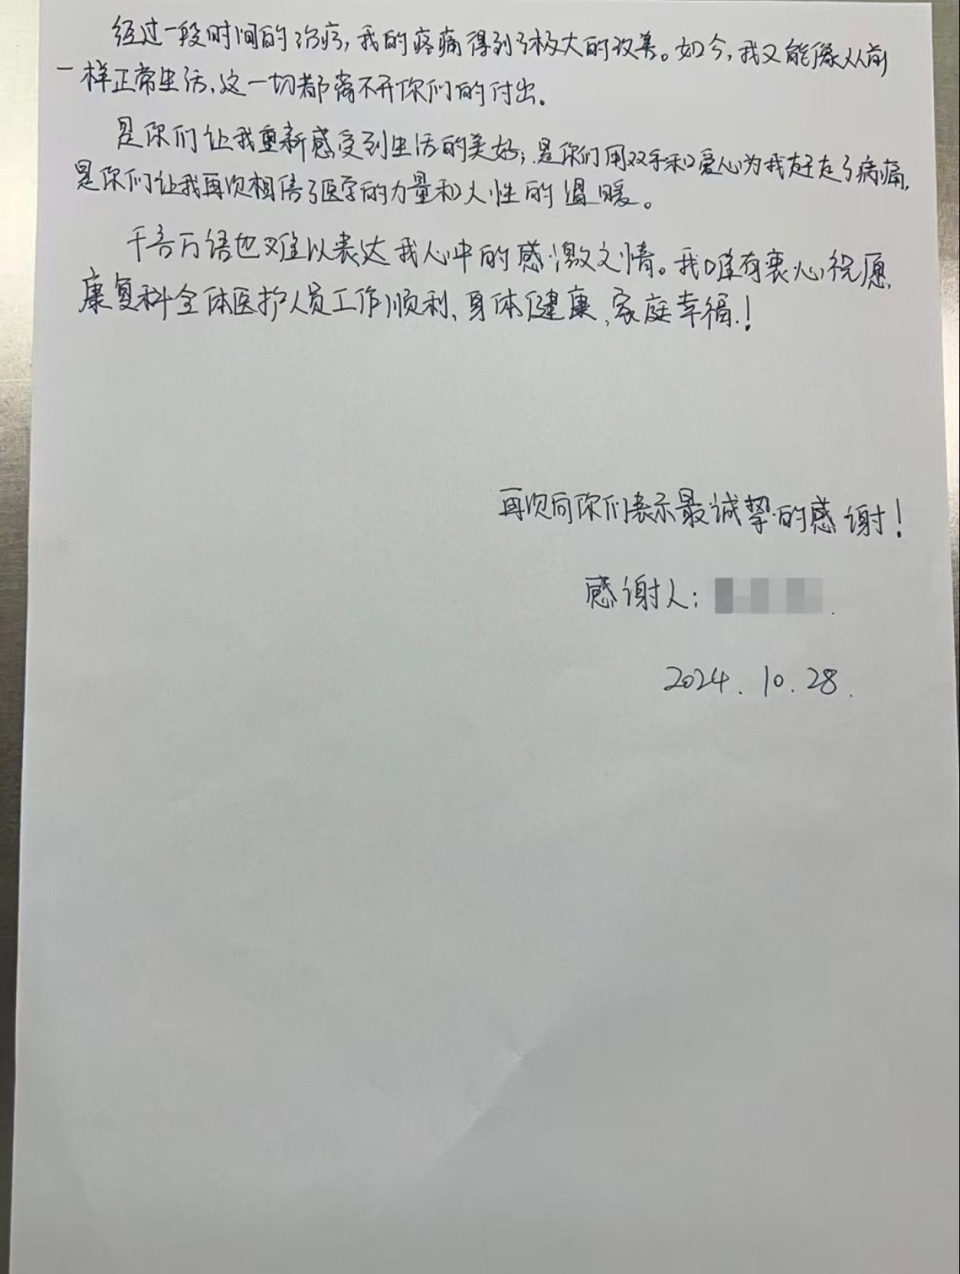 经过一段时间的治疗,我的疼痛得到了极大的改善。如今,我又能像从前
一样正常生活,这一切都离不开你们的付出.
是你们让我重新感受到生活的美好;是你们用双手和爱心为我赶走了病痛,
是你们让我再次相信了医学的力量和人性的温暖。
千言万语也难以表达我心中的感激之情。我唯有衷心祝愿,
康复科全体医护人员工作顺利、身体健康、家庭幸福.!
再次向你们表示最诚挚的感谢!
感谢人:
2024.10.28.